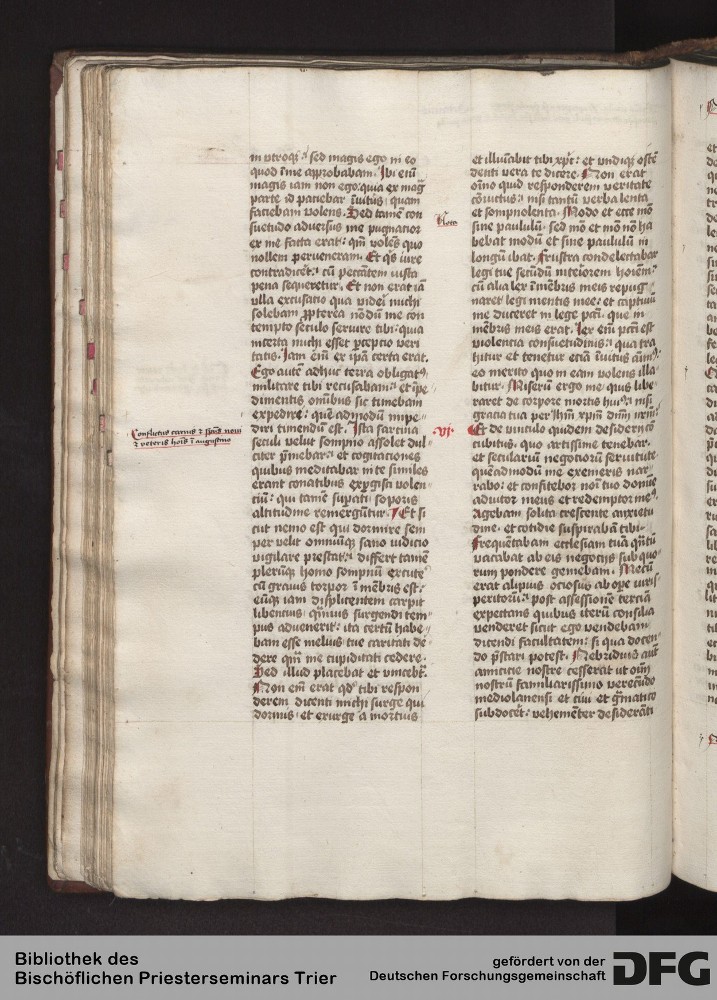 in utroq; sed magis ego in eo
quod ī me approbabam. Ibi eiū
magis iam non ego: quia ex mag̅
parte id paciebar īuitus quam
faciebam volens. Sed tamē con
suetudo aduersus me pugnacior
ex me facta erat: qm̄ volēs quo
nollem perueneram. Et qs iure
contradicet: cū peccātem iusta
pena sequeretur. Et non erat iā
vlla excusatio qua videri michi
solebam ꝓpterea nōdū me con
tempto seculo seruire tibi: quia
incerta michi esset ꝑceptio veri
tatis. Iam em̄ et ip̄a certa erat.
Ego autē adhuc terra obligatꝰ
militare tibi recusabam: et īpe
dimentis om̄ibus sic timebam
expedire: quēadmodū impe
diri timendū est. Ista sarcina
seculi velut sompno assolet dul
citer p̄mebar: et cogitationes
quibus meditabar in te similes
erant conatibus expgisci volen
ciū: qui tamē supati soporis
altitudine remergūtur. Et si
cut nemo est qui dormire sem
per velit omniūq; sano iudicio
vigilare prestat: differt tamē
plerūq; homo sompnū excute
cū grauis torpor ī mēbris est:
eūq; iam displicentem carpit
libencius quīuis surgendi tem
pus aduenerit: ita certū habe
bam esse melius tue caritati de
dere qm̄ me cupiditati cedere.
Sed illud placebat et vincebt̄.
Non em̄ erat qd tibi respon
derem dicenti michi surge qui
dormis et exurge a mortuis
Conflictus carnis et spūs noui
et veteris hoīs ī augustino
et illuīabit tibi xp̄c: et vndiq; ostē
denti vera te dicere. Non erat
oīno quid responderem veritate
cōuictus: nisi tantū verba lenta
et sompnolenta. Modo et ecce mō
Nota
sine paululū. sed mō et mō nō ha
bebat modū et sine paululū in
longū ibat. Frustra condelectabar
legi tue secūdū interiorem hoīem:
cū alia lex ī mēbris meis repug
naret legi mentis mee: et captiuū
me duceret in lege pctī. que in
mēbris meis erat. Lex em̄ pctī est
violencia consuetudinis: qua tra
hitur et tenetur eciā īuitus aīmꝰ:
eo merito quo in eam volens illa
bitur. Miserū ergo me quis libe
raret de corpore mortis huiꝰ: nisi
gracia tua per ihm̄ xpm̄ dnm̄ nrm̄:
.vi. Et de vinculo quidem desiderij cō
cubitus. quo artissime tenebar.
et seculariū negociorū seruitute
quēadmodū me exemeris nar
rabo: et confitebor noī tuo domie
adiutor meus et redemptor meꝰ.
Agebam solita crescente anxietu
dine. et cotidie suspirabā tibi.
Frequētabam ecclesiam tuā q̄ntū
vacabat ab eis negocijs sub quo
rum pondere gemebam. Mecū
erat alipius ociosus ab ope iuris
peritorū: post assessionē terciā
expectans quibus iterū consilia
venderet sicut ego vendebam
dicendi facultatem: si qua docen
do p̄stari potest. Nebridius aūt
amicicie nostre cesserat ut oīm
nostrū familiarissimo verecūdo
mediolanensi et ciui et gmatico
subdocet: vehemēter desiderāti
Bibliothek des
Bischöflichen Priesterseminars Trier
gefördert von der
Deutschen Forschungsgemeinschaft
DFG